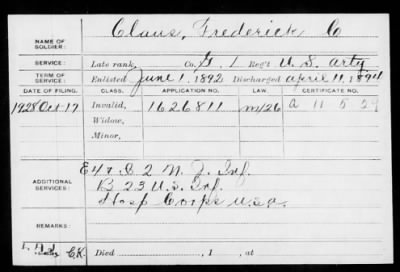 Claus, Frederick C
NAME OF SOLDIER:
SERVICE: Late rank, Co. G, 1 Reg't U. S. Arty
TERM OF SERVICE: Enlisted June 1, 1892 Discharged April 11, 1894
DATE OF FILING. CLASS. APPLICATION NO. LAW. CERTIFICATE NO.
1928 Oct-17 Invalid, 1626811 m/26 a 11 5 29
Widow,
Minor,
ADDITIONAL SERVICES: E 4 & D 2 N. J. Inf.
B 23 U.S. Inf.
Hosp Corps U.S.A.
REMARKS:
C.K. Died , 1 , at